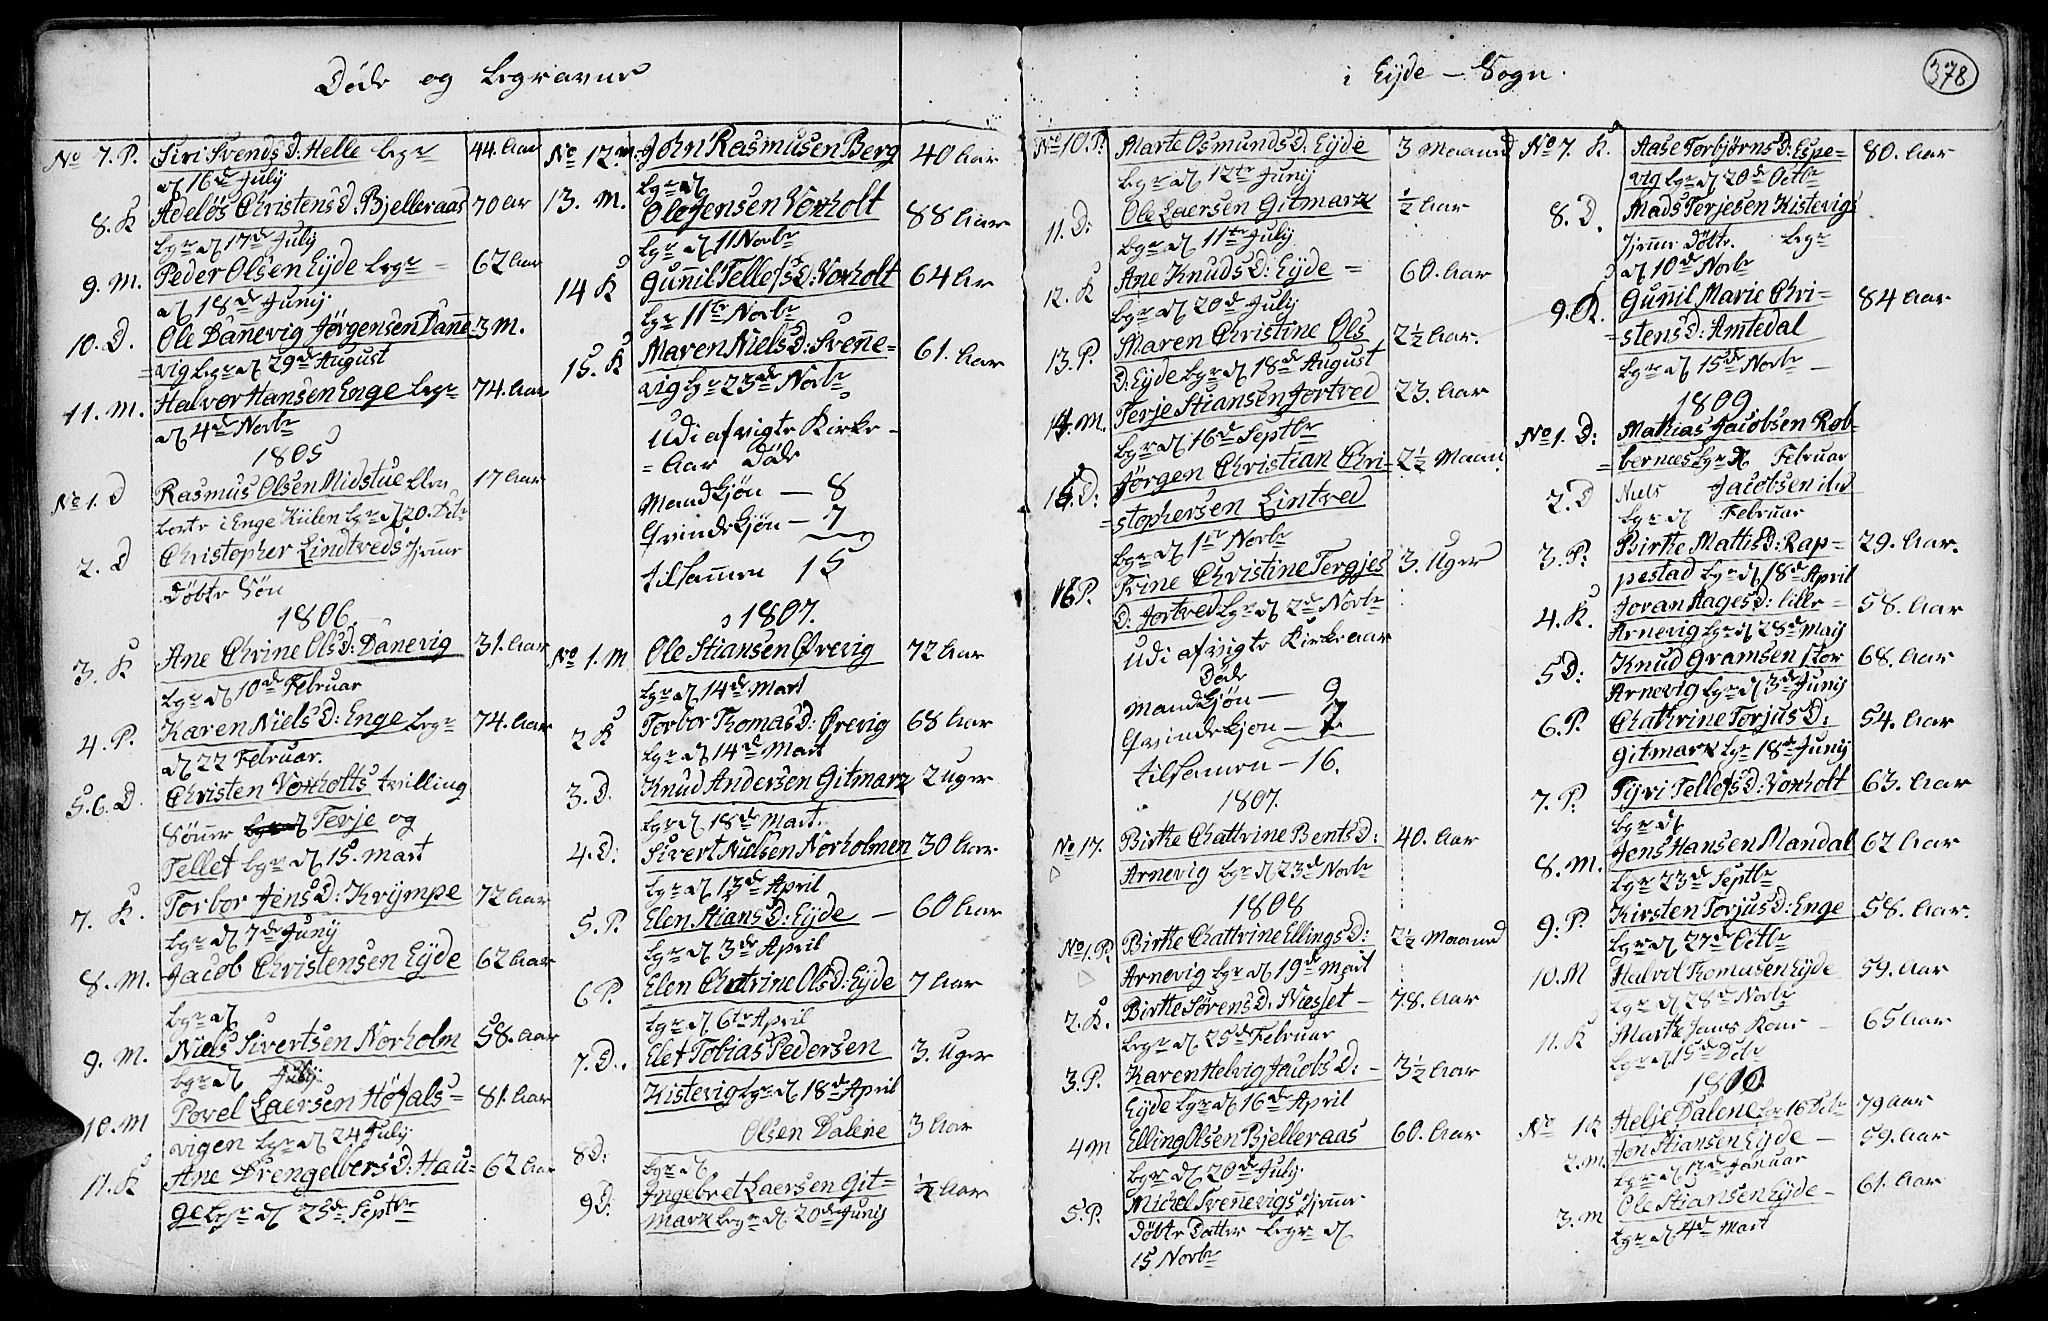 Døde og begravne
No 7. P. Siri Svends D: Helle begr 44. Aar
d 16de July
8. K Adelös Christens D. Bjelleraas 70 Aar
begr d 17de July
9. M. Peder Olsen Eyde begr 62 Aar
d 18de Junij
10. D. Ole Dannevig Jørgensen Danne 3 M.
=vig begr d 29de August
11. M. Halvor Hansen Enge begr 74. Aar
d 4de Novbr
1805
No 1. D Rasmus Olsen Midstue blev 17 Aar
borte i Enge Kiilen begr d 20. Octbr
2. D Christopher Lindtveds hjemme
Døbte Søn
1806.
3. K Ane Chrine Ols D: Danevig 31. Aar
begr d 10de Februar
4. P. Karen Niels D: Enge begr 74. Aar
d 22 Februar.
5.6. D. Christen Voxholts tvilling
Sønner Terje og
Tellef begr d 15. Mart
7. K. Torbor Jens D: Krympe 72 Aar
begr d 7de Junij
8. M. Jacob Christensen Eyde 62 Aar
begr d
9. M. Niels Sivertsen Norholm 58. Aar
begr d July
10. M Povel Laersen Höfals= 81. Aar
vigen begr d 24 July
11. K Ane Drengelbers D: Hau= 62 Aar
ge begr d 25de Septbr
No 12 m. John Rasmusen Berg 40 Aar
begr d
13. M. Ole Jensen Voxholt 88 Aar
begr d 11 Novbr
14 K Gunnil Tellefs D: Voxholt 64 Aar
begr 11te Novbr
15. K Maren Niels D: Svenne= 61. Aar
vig begr 23de Novbr
Udi afvigte Kirke-
=Aar Døde
Mandkjøn — 8
Qvindekjøn — 7
tilsammen 15
1807.
No 1. M Ole Stiansen Ørevig 72 Aar
begr d 14de Mart
2 K Torbor Thomas D: Ørevig 68 Aar
begr d 14de Mart
3. D. Knud Andersen Gitmark 2 Uger
begr d 18de Mart.
4. D: Sivert Nielsen Norholmen 30 Aar
begr d 13de April
5. P. Elen Stians D: Eyde 60 Aar
begr d 3de April
6 P. Elen Chatrine Ols D: Eyde 7 Aar
begr d 6te April
7. D. Elet Tobias Pedersen 3. Uger
Kistevig begr d 18de April
8 D: Olsen Dalene 3 Aar
begr d
9 D: Ingebret Laersen Git= ½ Aar
mark begr d. 20de Junij
i Eyde — Sogn.
378
No 10. P. Marte Osmunds D: Eyde 3 Maaned
begr d 12te Junij
11. D: Ole Laersen Gitmark ½ Aar
begr d 11te July
12. K Ane Knuds D: Eyde = 60. Aar
begr d 20de July
13. P. Maren Christine Ols 2½ Aar.
D: Eyde begr d 18de August
14. M. Terje Stiansen Jortved 23. Aar
begr d 16de Septbr
15. D: Jørgen Christian Chri= 2½ Maan
=stophersen Lintved
begr d 1ste Novbr
16 P. Trine Christine Tergjes 3. Uger
D: Jortved begr d 2de Novbr
Udi afvigte Kirkeaar
Døde
Mandkjøn — 9
Qvindekjøn — 7
tilsamen — 16.
1807.
No 17. Birthe Chattrine Bents D: 40. Aar
Arnevig begr d 23de Novbr
1808
No 1. P. Birthe Chattrine Ellings D: 2½ Maaned
Arnevig begr d 19de Mart
2. K. Birthe Sørens D: Næsset — 78. Aar
begr d 25de Februar
3. P. Karen Helvig Jacobs D: — 3½ Aar
Eyde begr d 16de April
4 M Elling Olsen Bjelleraas 60. Aar
begr d 20de July
5. P. Michel Svennevigs hjemme
døbte Datter begr d
15 Novbr
No 7. K. Aase Torbjørns D: Espe= 80. Aar
vig begr d 20de Octbr
8. D. Mads Terjesen Kistevigs
hjemme Døbte. begr
d 10de Novbr
9. K. Gunnil Marie Chri= 84 Aar
=stens D: Amtedal
begr d 15de Novbr —
1809
No 1. D: Mathias Jacobsen Rob=
=bernæs begr d Februar
2. D Niels Jacobsen ibid
begr d Februar
3. P: Birthe Mathis D: Rap= 29. Aar.
pestad begr d 18de April
4. K. Joran Aages D: lille= 58. Aar
Arnevig begr d 28de Maij
5 D: Knud Gramsen stor 68. Aar
Arnevig begr d 3de Junij
6. P. Chathrine Torjus D: 54. Aar
Gitmark begr 18de Junij
7. P. Tyri Tellefs D: Voxholt 63. Aar
begr d
8. M. Jens Hansen Mandal 62 Aar
begr 23de Septbr
9. P Kirsten Torjus D: Enge 58. Aar.
begr d 27de Octbr
10. M Halvor Thomasen Eyde 59. Aar
begr d 28de Novbr
11. K Marthe 65 Aar
begr d 15de Debr
1810
No 1 K Helje Dalene begr 16 Debr 79 Aar
2. M. Jon Stiansen Eyde — 59. Aar
begr d 13de Januar
3. M Ole Stiansen Eyde — 61. Aar
begr d 4de Mart